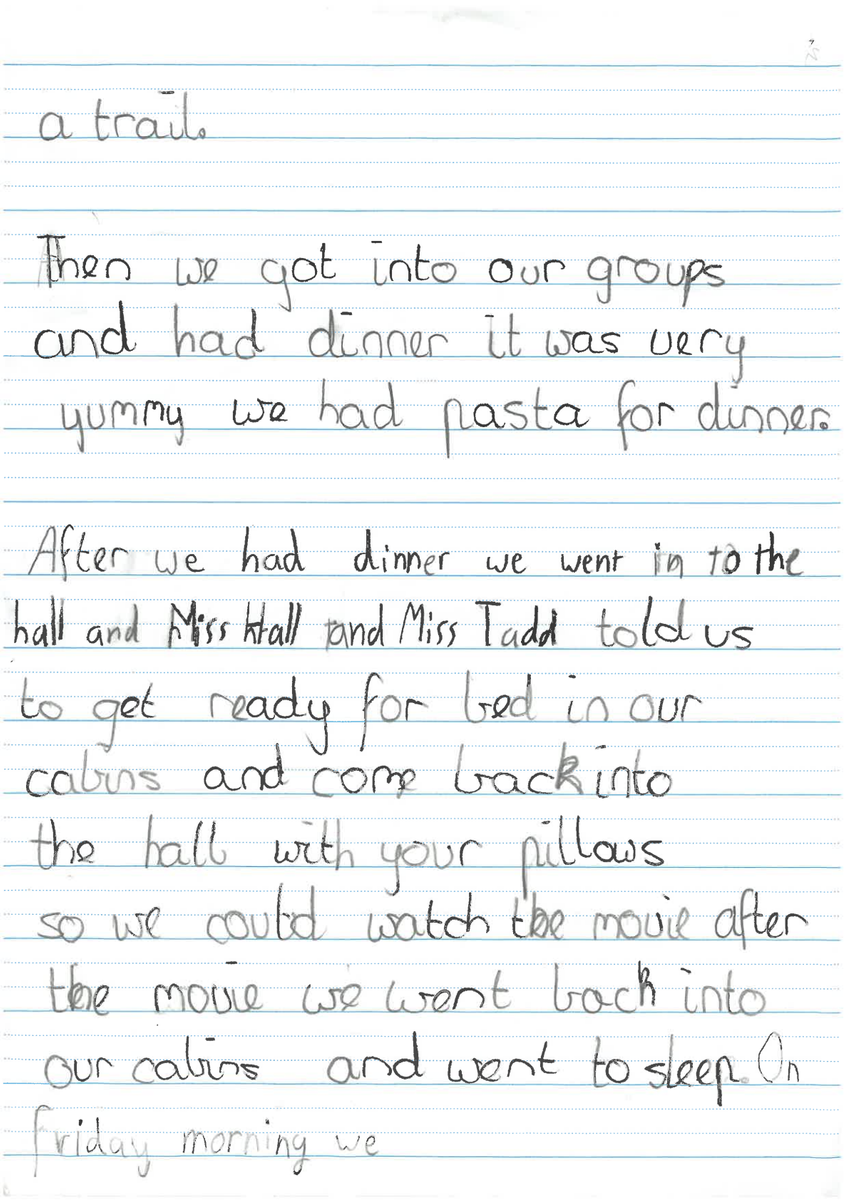 a trail.
Then we got into our groups
and had dinner it was very
yummy we had pasta for dinner.
After we had dinner we went in to the
hall and Miss Hall and Miss Tadd told us
to get ready for bed in our
cabins and come back into
the hall with your pillows
so we could watch the movie after
the movie we went back into
our cabins and went to sleep. On
friday morning we